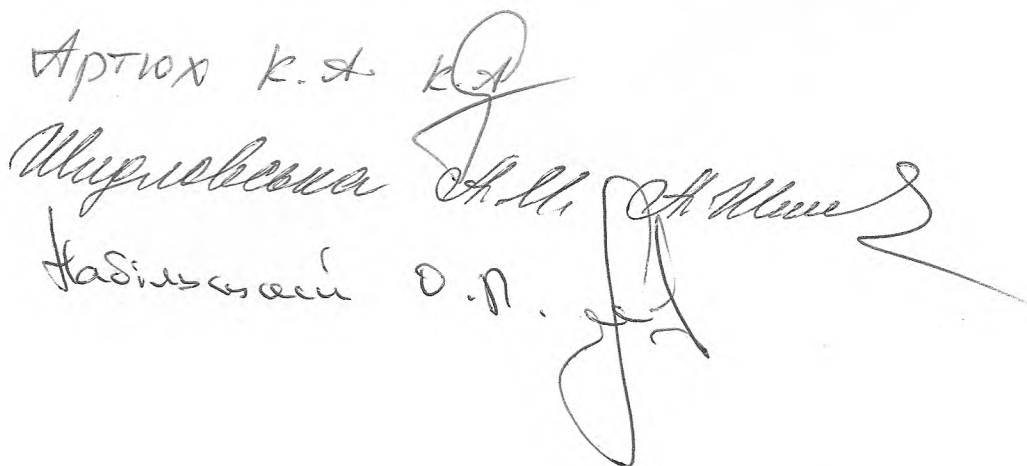 Артюх К.А К.А
Шидловська А.М. А.Шид
Набільський О.П.